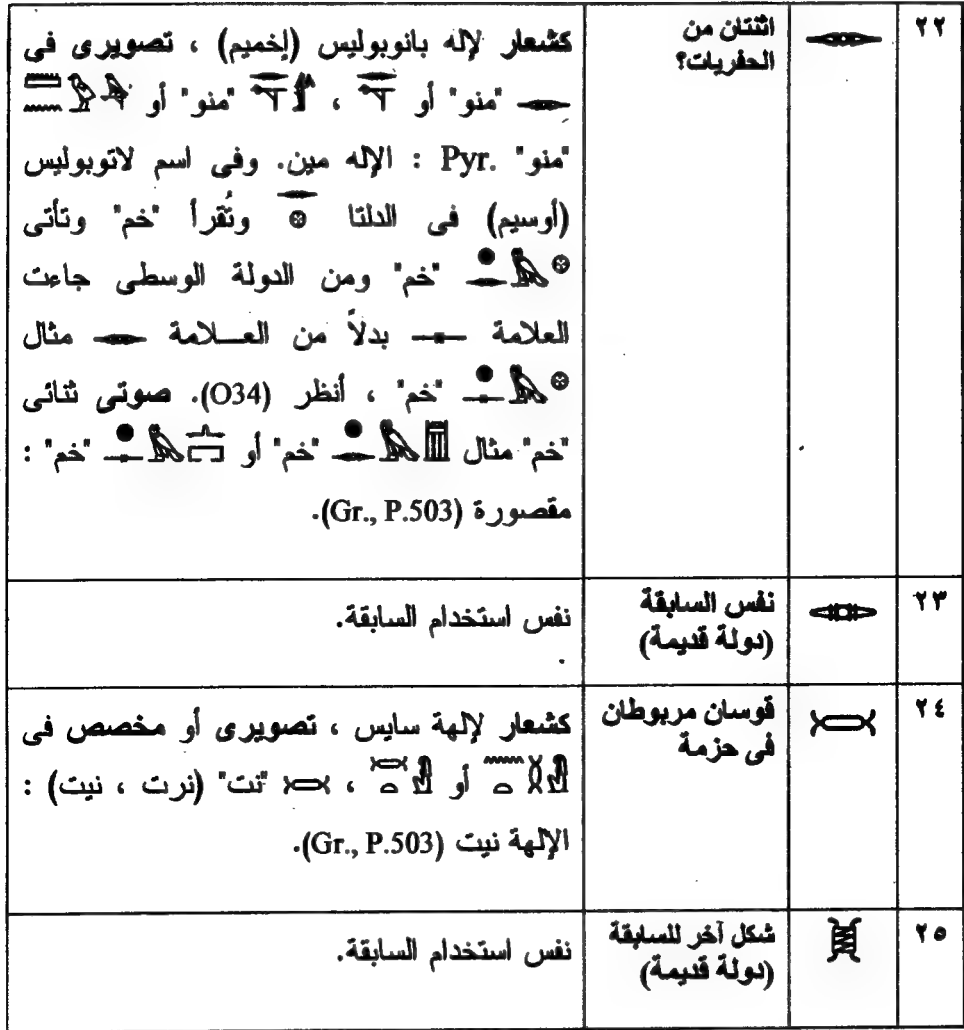 ٢٢
اثنتان من
الحفريات؟
كشعار لإله بانوبوليس (إخميم) ، تصويرى فى
𓋉 "منو" أو 𓋉𓊾 ، 𓋉𓊾 "منو" أو 𓏠𓈖𓅱
"منو" Pyr. : الإله مين. وفى اسم لاتوبوليس
(أوسيم) فى الدلتا 𓋉𓊖 وتُقرأ "خم" وتأتى
𓐍𓋉𓅓𓊖 "خم" ومن الدولة الوسطى جاءت
العلامة 𓊃 بدلاً من العـــلامة 𓋉 مثال
𓐍𓊃𓅓𓊖 "خم" ، أنظر (O34). صوتى ثنائى
"خم" مثال 𓐍𓋉𓅓 "خم" أو 𓐍𓊃𓅓𓉐 "خم" :
مقصورة (Gr., P.503).
٢٣
نفس السابقة
(دولة قديمة)
نفس استخدام السابقة.
٢٤
قوسان مربوطان
فى حزمة
كشعار لإلهة سايس ، تصويرى أو مخصص فى
أو ، 𓋋 "نت" (نرت ، نيت) :
الإلهة نيت (Gr., P.503).
٢٥
شكل آخر للسابقة
(دولة قديمة)
نفس استخدام السابقة.